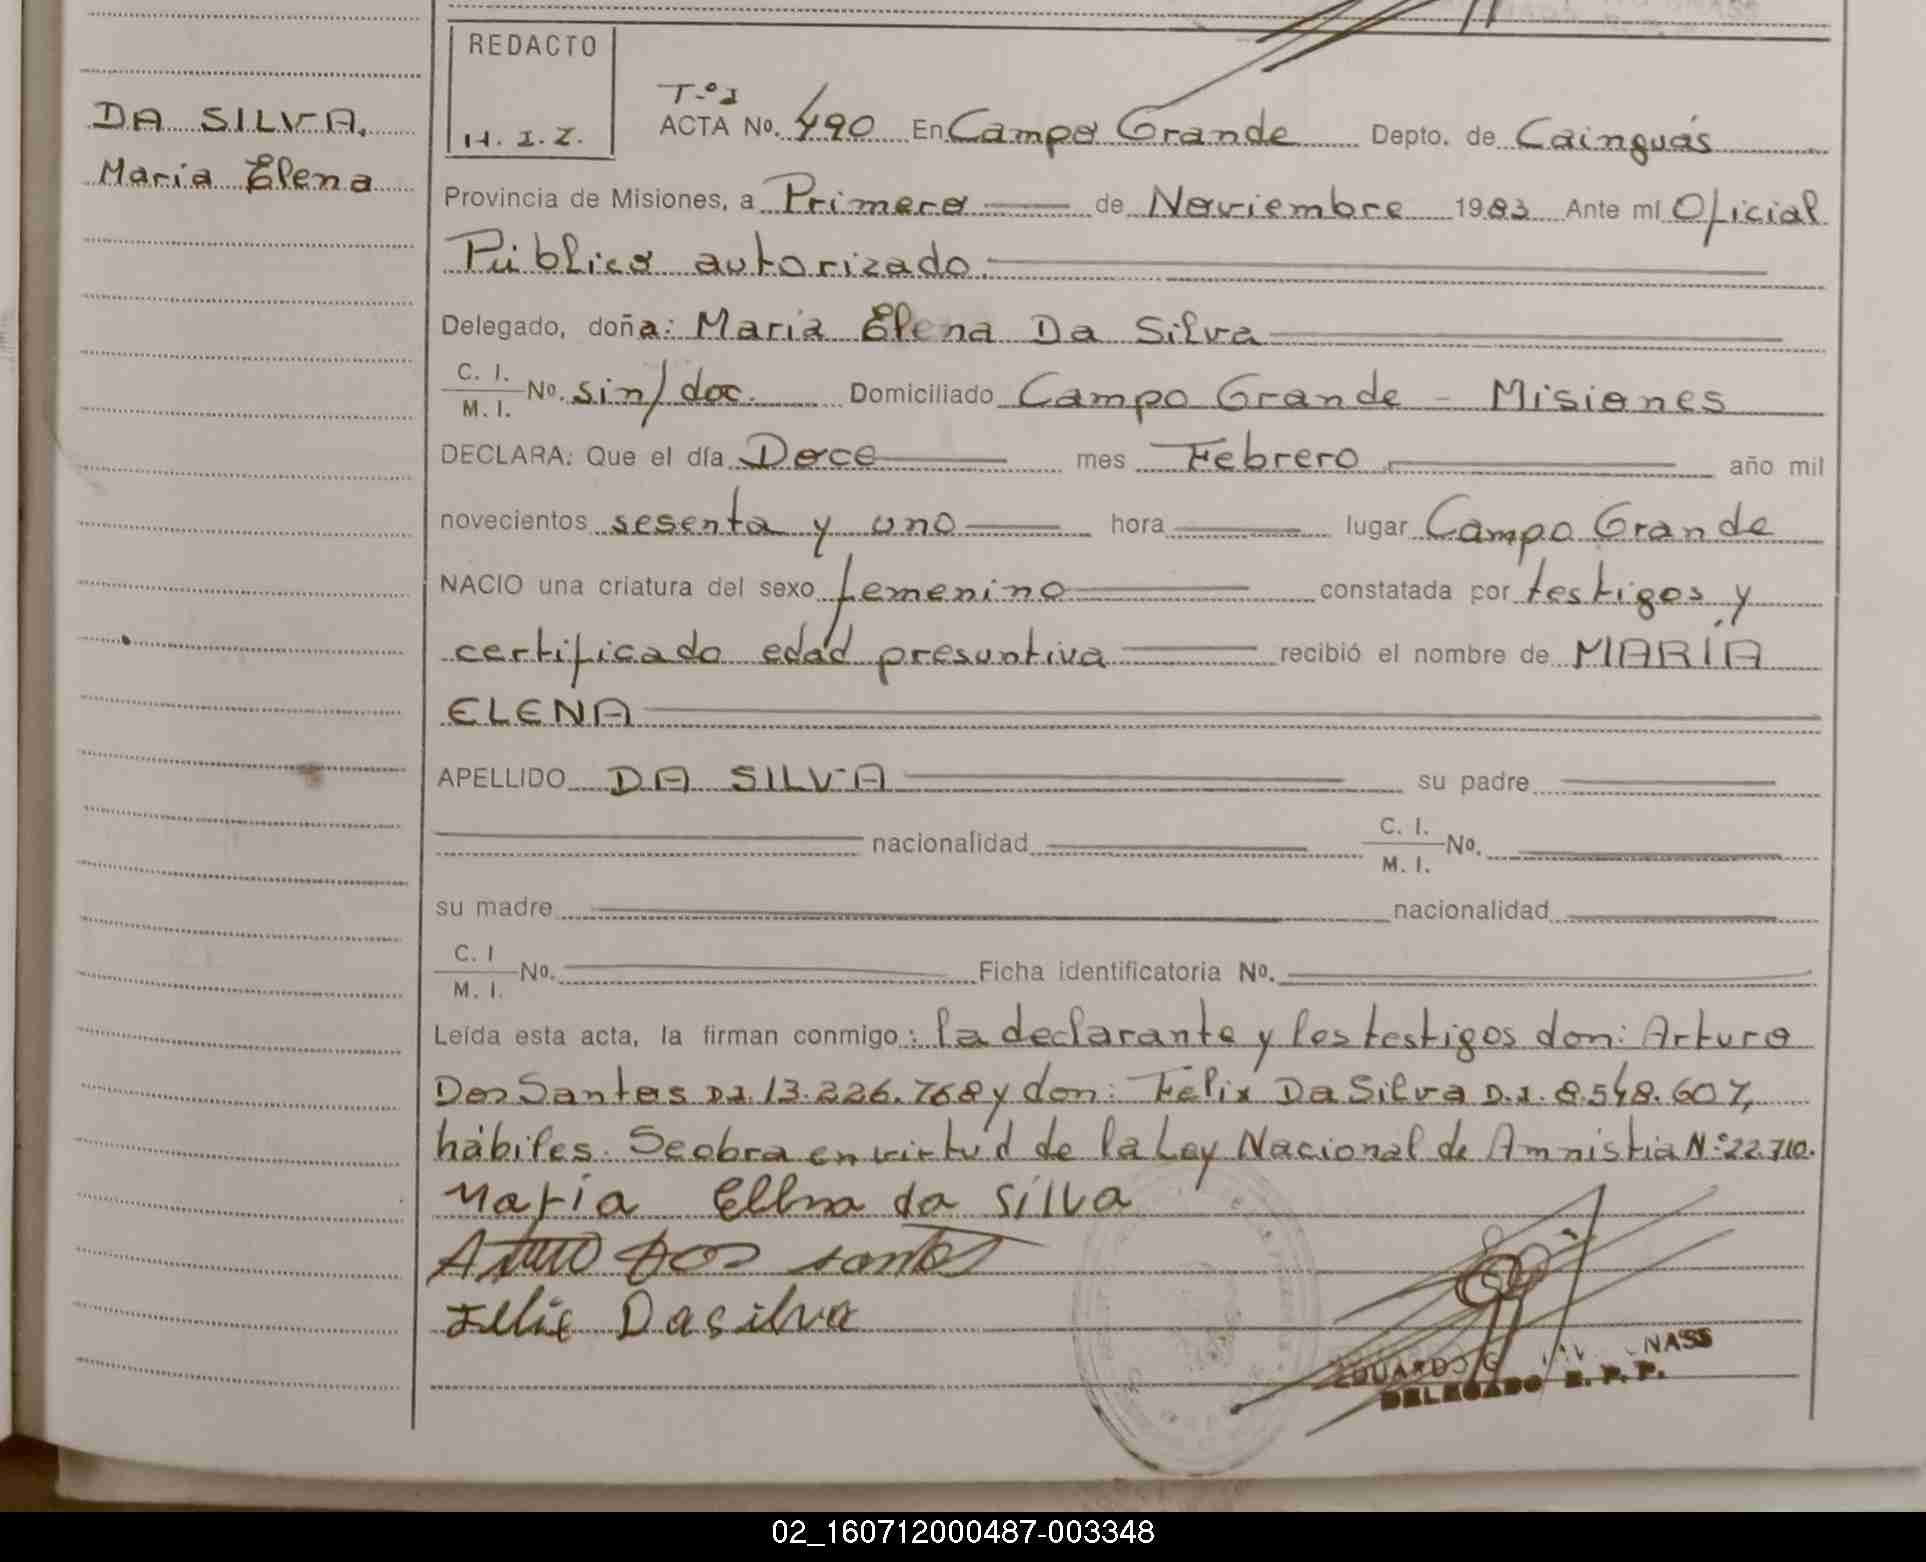 DA SILVA.
Maria Elena
REDACTO
H. I. Z.
T-º I
ACTA No. 490 En Campo Grande Depto. de Cainguás
Provincia de Misiones, a Primero de Noviembre 1983 Ante mí Oficial
Público autorizado.
Delegado, doña: Maria Elena Da Silva
C. I.
M. I. No. sin/doc. Domiciliado Campo Grande - Misiones
DECLARA: Que el día Doce mes Febrero año mil
novecientos sesenta y uno hora lugar Campo Grande
NACIO una criatura del sexo femenino constatada por testigos y
certificado edad presuntiva recibió el nombre de MARÍA
ELENA
APELLIDO DA SILVA su padre
nacionalidad C. I. M. I. No.
su madre nacionalidad
C. I M. I. No. Ficha identificatoria No.
Leída esta acta, la firman conmigo: la declarante y los testigos don: Arturo
Dos Santos D.I. 13.226.768 y don: Félix Da Silva D.I. 8.548.607,
hábiles. Se obra en virtud de la Ley Nacional de Amnistia Nº 22.710.
Maria Ellna da silva
Arturo dos santos
Felix Dasilva
EDUARDO NASS
DELEGADO R. P. P.
02_160712000487-003348